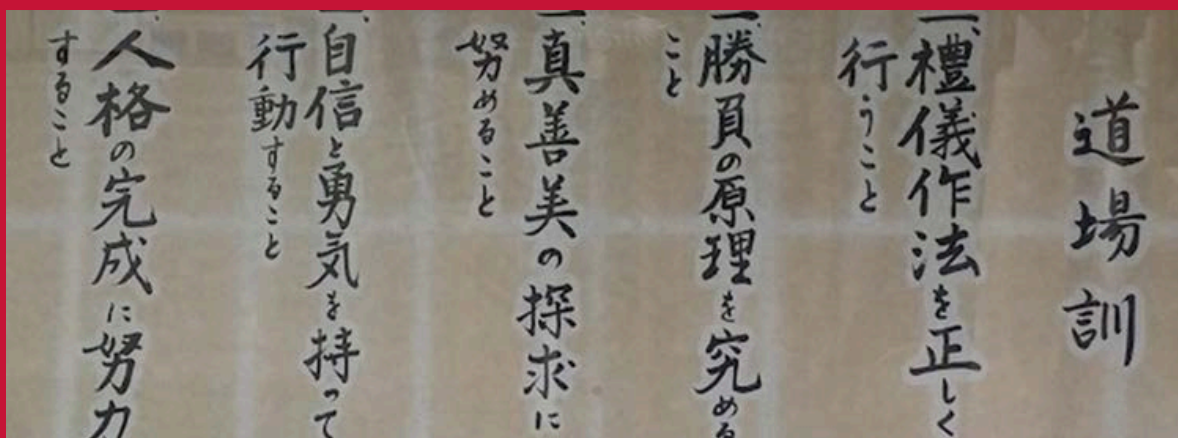 道場訓
一、禮儀作法を正しく
行うこと
一、勝負の原理を究める
こと
一、真善美の探求に
努めること
一、自信と勇気を持って
行動すること
一、人格の完成に努力
すること